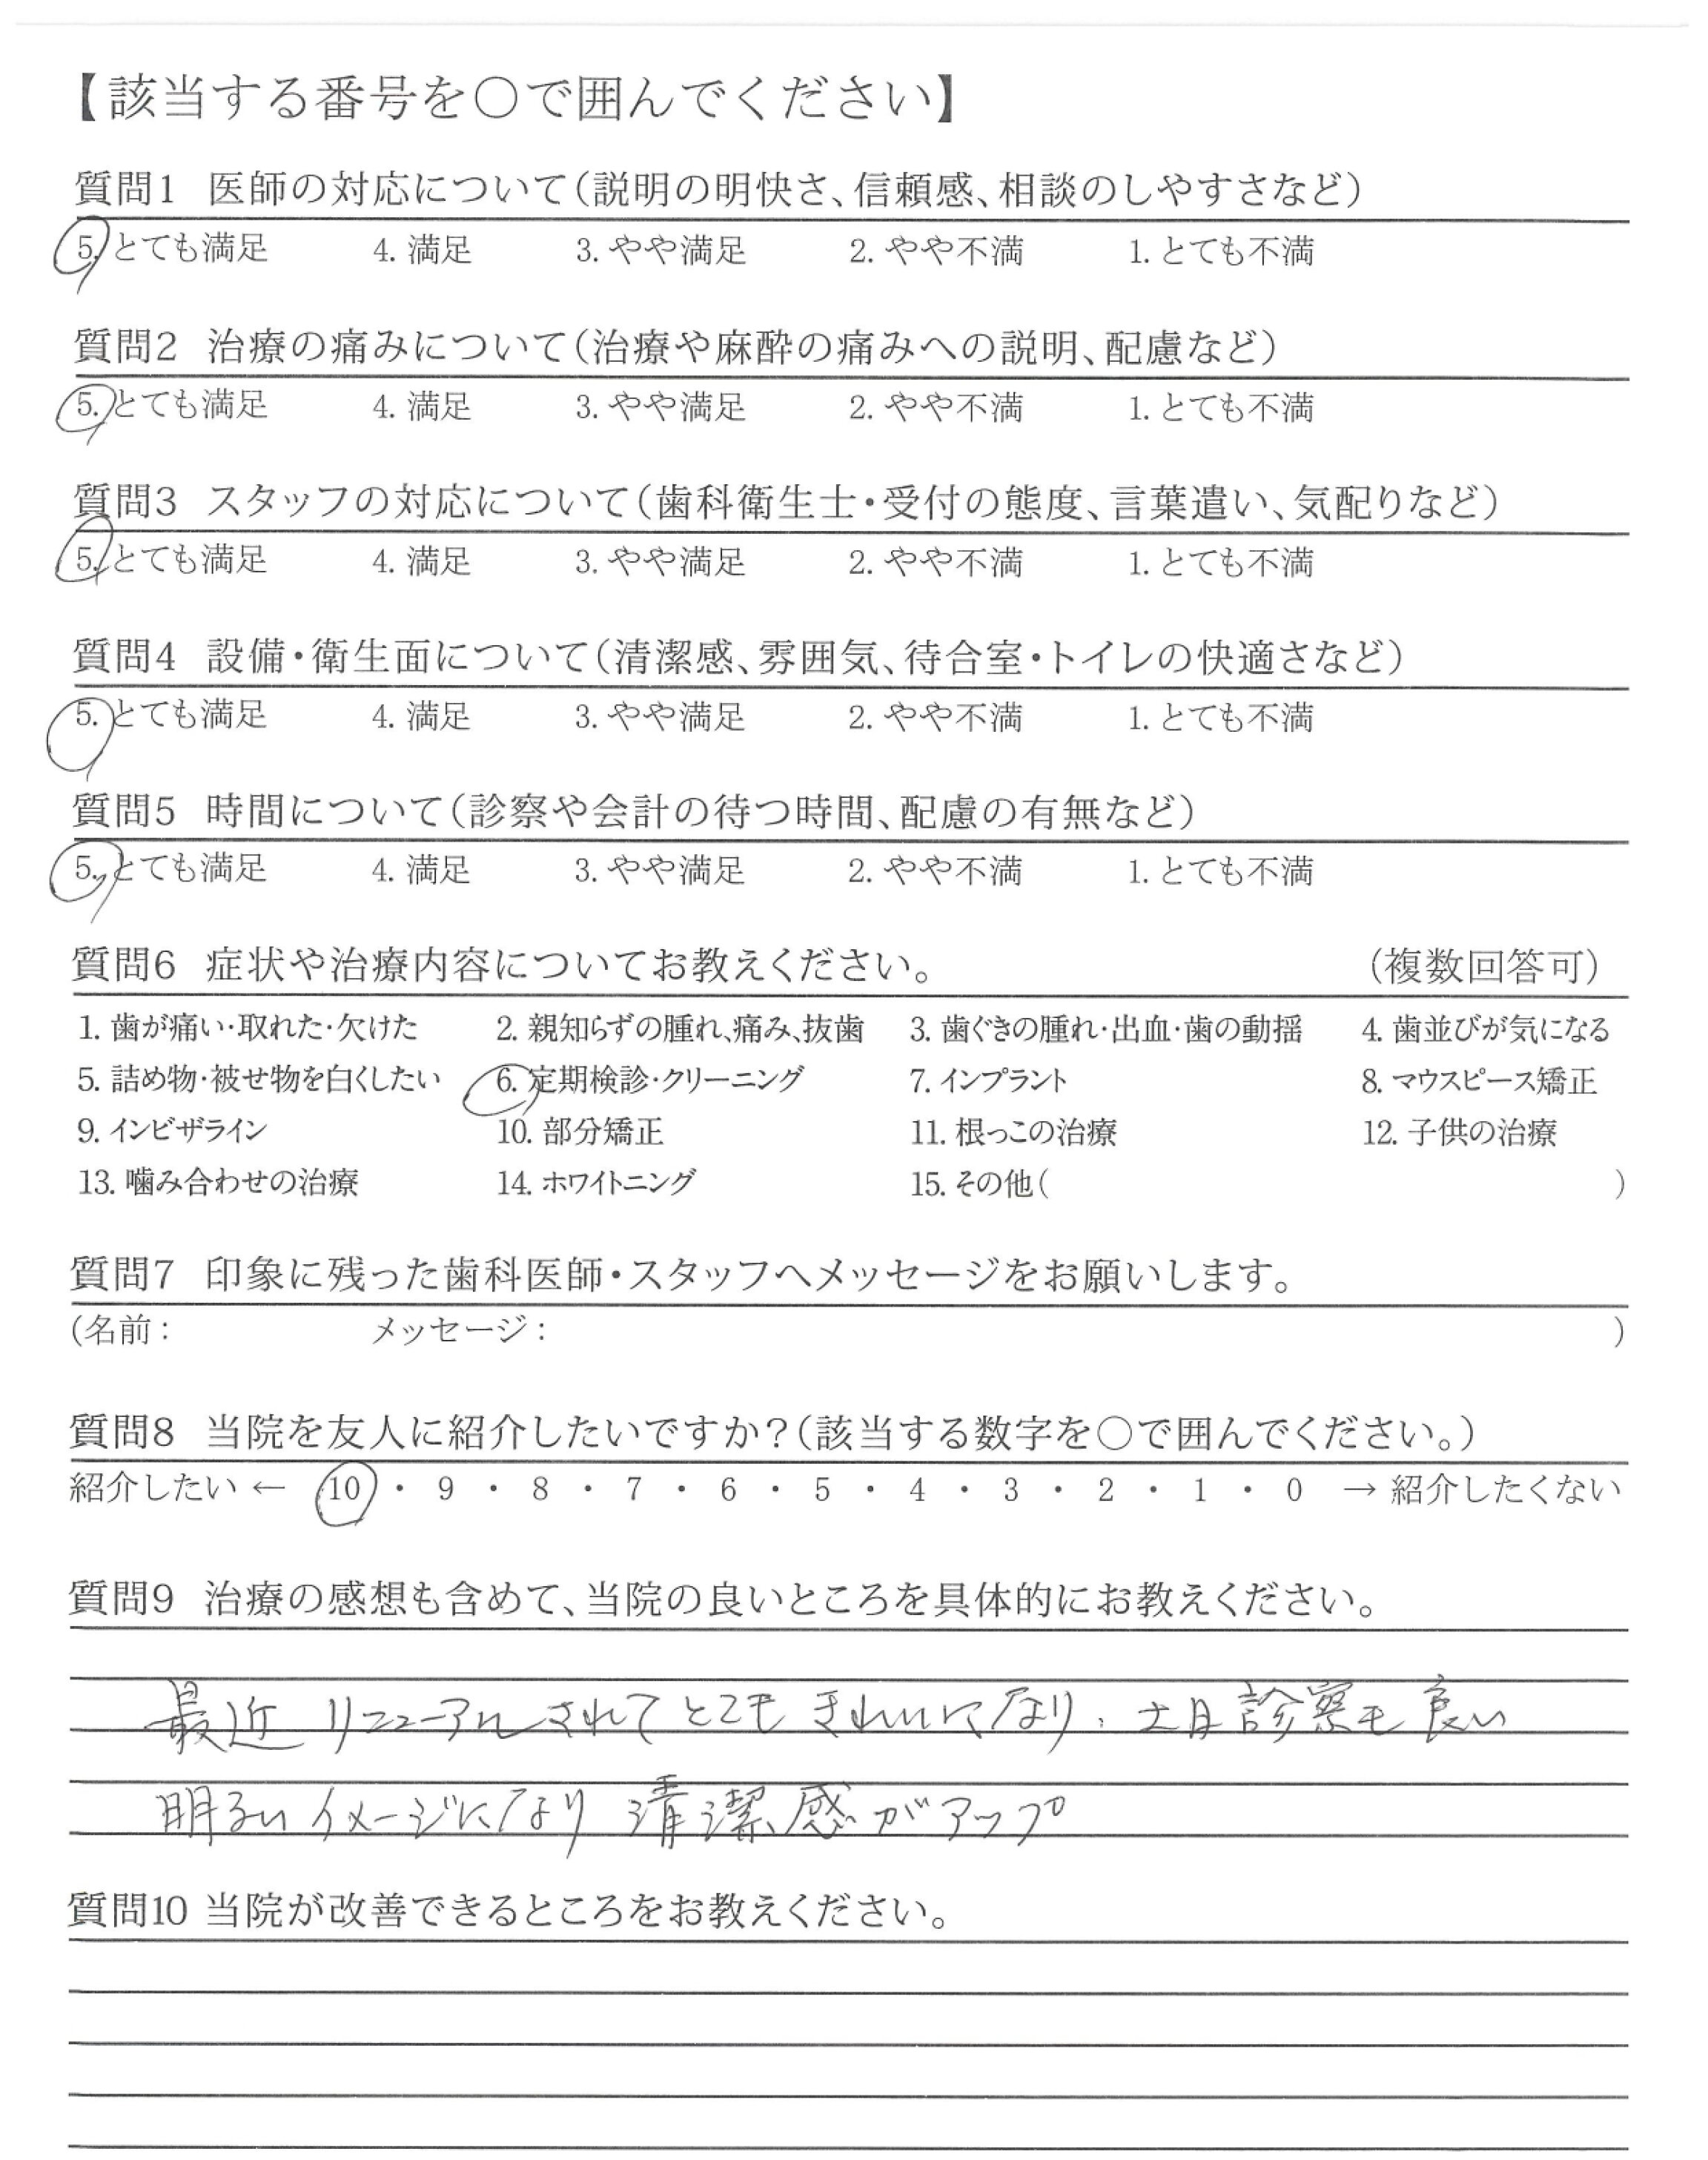 【該当する番号を○で囲んでください】
質問1 医師の対応について（説明の明快さ、信頼感、相談のしやすさなど）
5. とても満足 4. 満足 3. やや満足 2. やや不満 1. とても不満
質問2 治療の痛みについて（治療や麻酔の痛みへの説明、配慮など）
5. とても満足 4. 満足 3. やや満足 2. やや不満 1. とても不満
質問3 スタッフの対応について（歯科衛生士・受付の態度、言葉遣い、気配りなど）
5. とても満足 4. 満足 3. やや満足 2. やや不満 1. とても不満
質問4 設備・衛生面について（清潔感、雰囲気、待合室・トイレの快適さなど）
5. とても満足 4. 満足 3. やや満足 2. やや不満 1. とても不満
質問5 時間について（診察や会計の待つ時間、配慮の有無など）
5. とても満足 4. 満足 3. やや満足 2. やや不満 1. とても不満
質問6 症状や治療内容についてお教えください。 （複数回答可）
1. 歯が痛い・取れた・欠けた 2. 親知らずの腫れ、痛み、抜歯 3. 歯ぐきの腫れ・出血・歯の動揺 4. 歯並びが気になる
5. 詰め物・被せ物を白くしたい 6. 定期検診・クリーニング 7. インプラント 8. マウスピース矯正
9. インビザライン 10. 部分矯正 11. 根っこの治療 12. 子供の治療
13. 噛み合わせの治療 14. ホワイトニング 15. その他（ ）
質問7 印象に残った歯科医師・スタッフへメッセージをお願いします。
（名前： メッセージ： ）
質問8 当院を友人に紹介したいですか？（該当する数字を○で囲んでください。）
紹介したい ← 10 ・ 9 ・ 8 ・ 7 ・ 6 ・ 5 ・ 4 ・ 3 ・ 2 ・ 1 ・ 0 → 紹介したくない
質問9 治療の感想も含めて、当院の良いところを具体的にお教えください。
最近 リニューアルされて とても きれいになり、土日診察も良い
明るいイメージになり 清潔感がアップ
質問10 当院が改善できるところをお教えください。